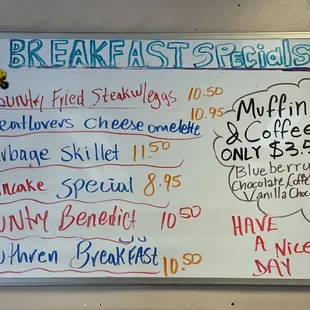 BREAKFAST Specials
ountry Fried Steak w/eggs 10.50
eatlovers cheese omelette 10.95
arbage Skillet 11.50
ancake Special 8.95
untry Benedict 10.50
uthren Breakfast 10.50
Muffin
& Coffee
ONLY $3.5
Blueberry
Chocolate Coffe
Vanilla Choc
HAVE
A NICE
DAY